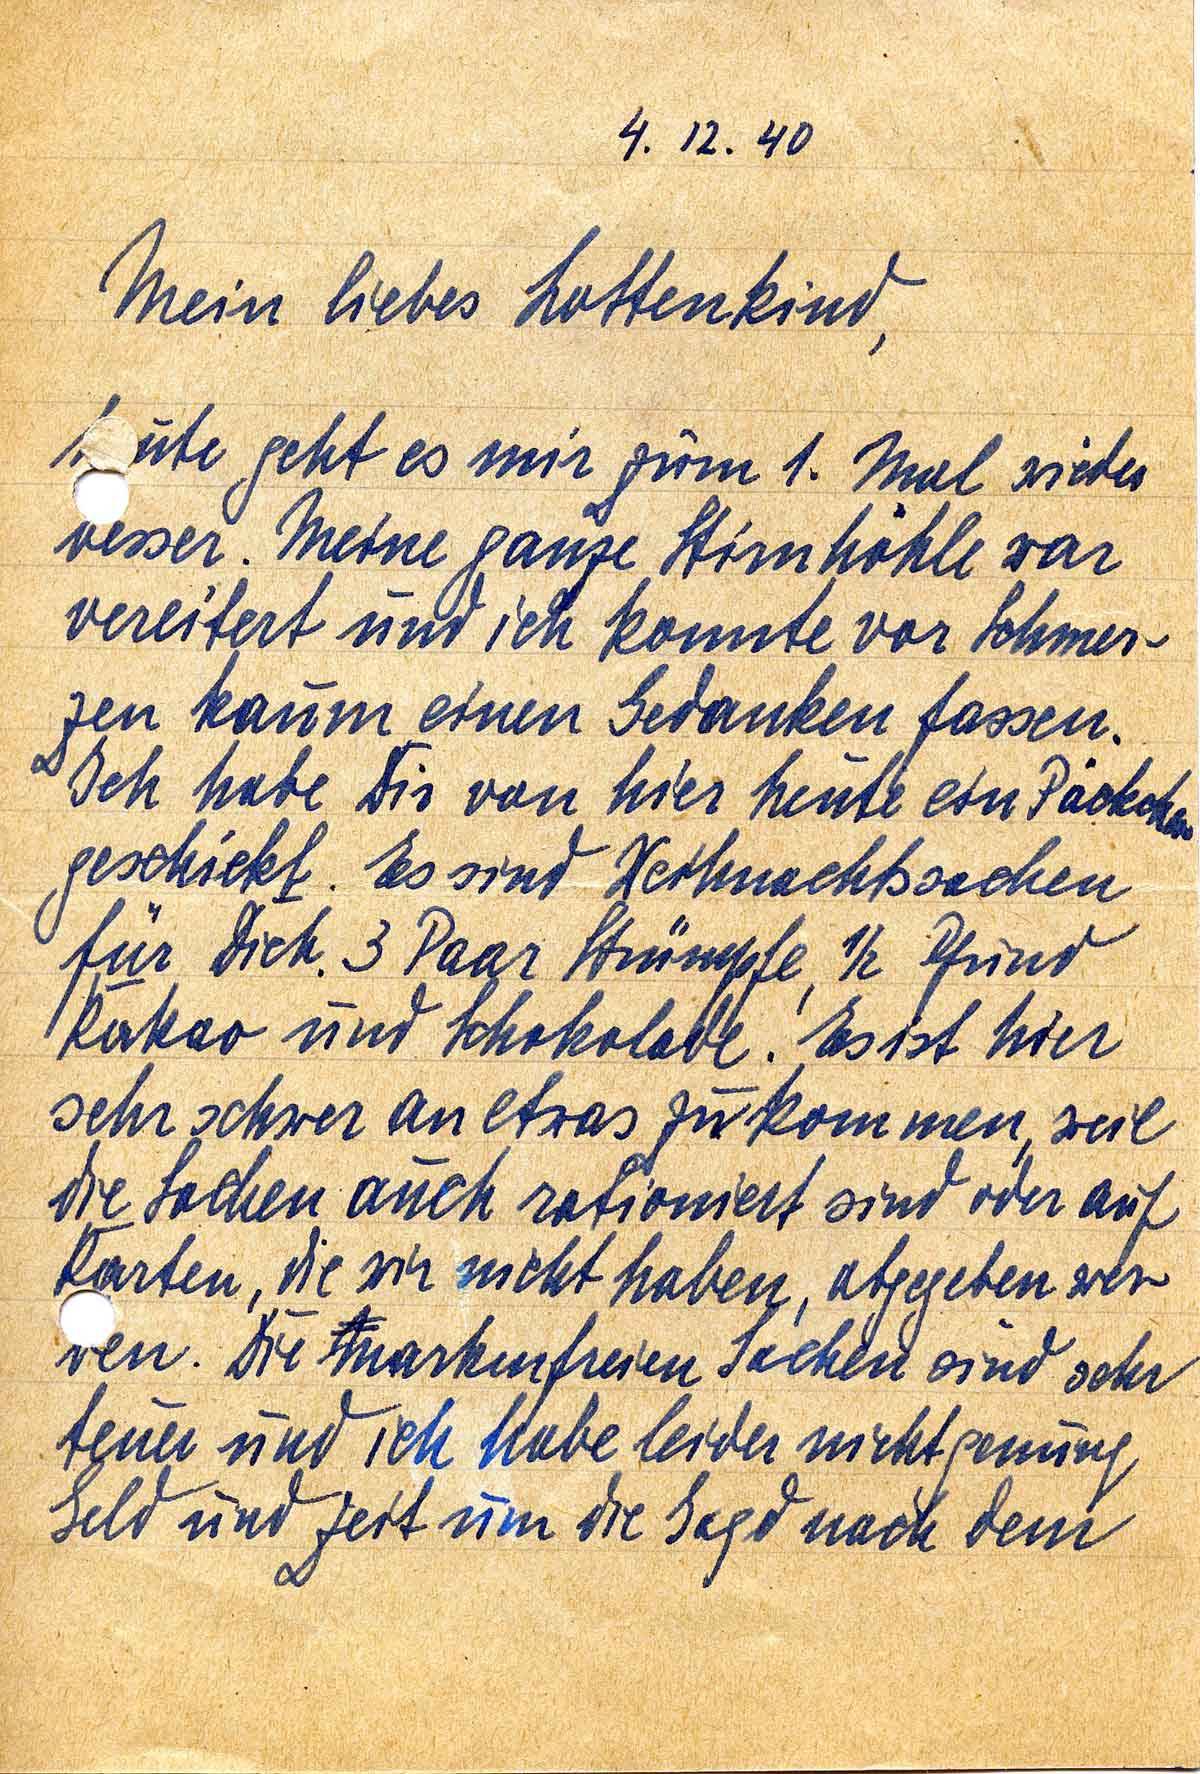 4. 12. 40
Mein liebes Lottenkind,
heute geht es mir zum 1. Mal wieder
besser. Meine ganze Stirnhöhle war
vereitert und ich konnte vor Schmer-
zen kaum einen Gedanken fassen.
Ich habe Dir von hier heute ein Päckchen
geschickt. Es sind Weihnachtssachen
für Dich. 3 Paar Strümpfe, 1/2 Pfund
Kakao und Schokolade! Es ist hier
sehr schwer an etwas zu kommen, weil
die Sachen auch rationiert sind oder auf
Karten, die wir nicht haben, abgegeben wer-
den. Die markenfreien Sachen sind sehr
teuer und ich habe leider nicht genung
Geld und Zeit um die Jagd nach dem